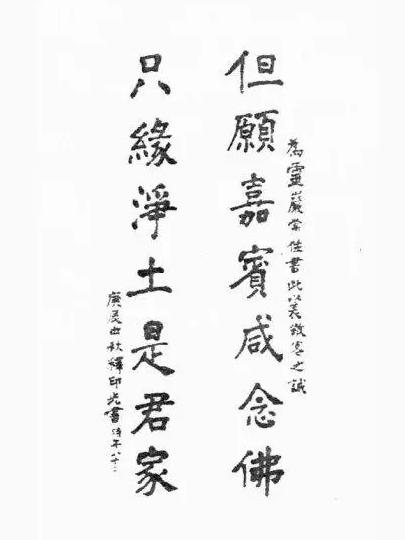 為靈巖常住書此以表敬客之誠
但願嘉賓咸念佛
只緣淨土是君家
庚辰秋釋印光書時年八十